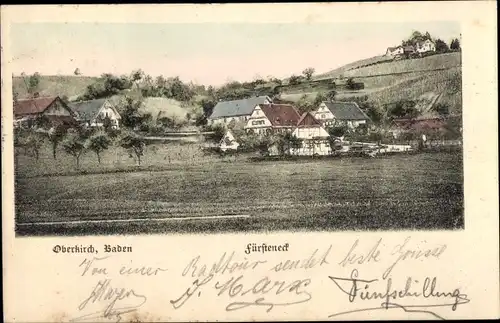 Oberkirch, Baden Fürsteneck
Von einer Radtour sendet beste Grüsse
Mayer J. Marx Fünfschilling